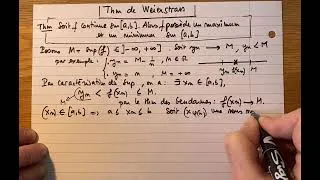 Thm de Weierstrass
Thm Soit f continue sur [a,b]. Alors f possède un maximum
et un minimum sur [a,b]
Posons M = sup(f) ∈ ]-∞, +∞] soit yn → M, yn < M
par exemple : { yn = M - 1/n, M ∈ R
yn = n, M = +∞
Par caractérisation du sup, on a : ∃ xn ∈ [a,b],
yn < f(xn) ≤ M.
M par le thm des gendarmes : f(xn) → M.
(xn) ∈ [a,b] ⇒ a ≤ xn ≤ b Soit (xφ(n)) une